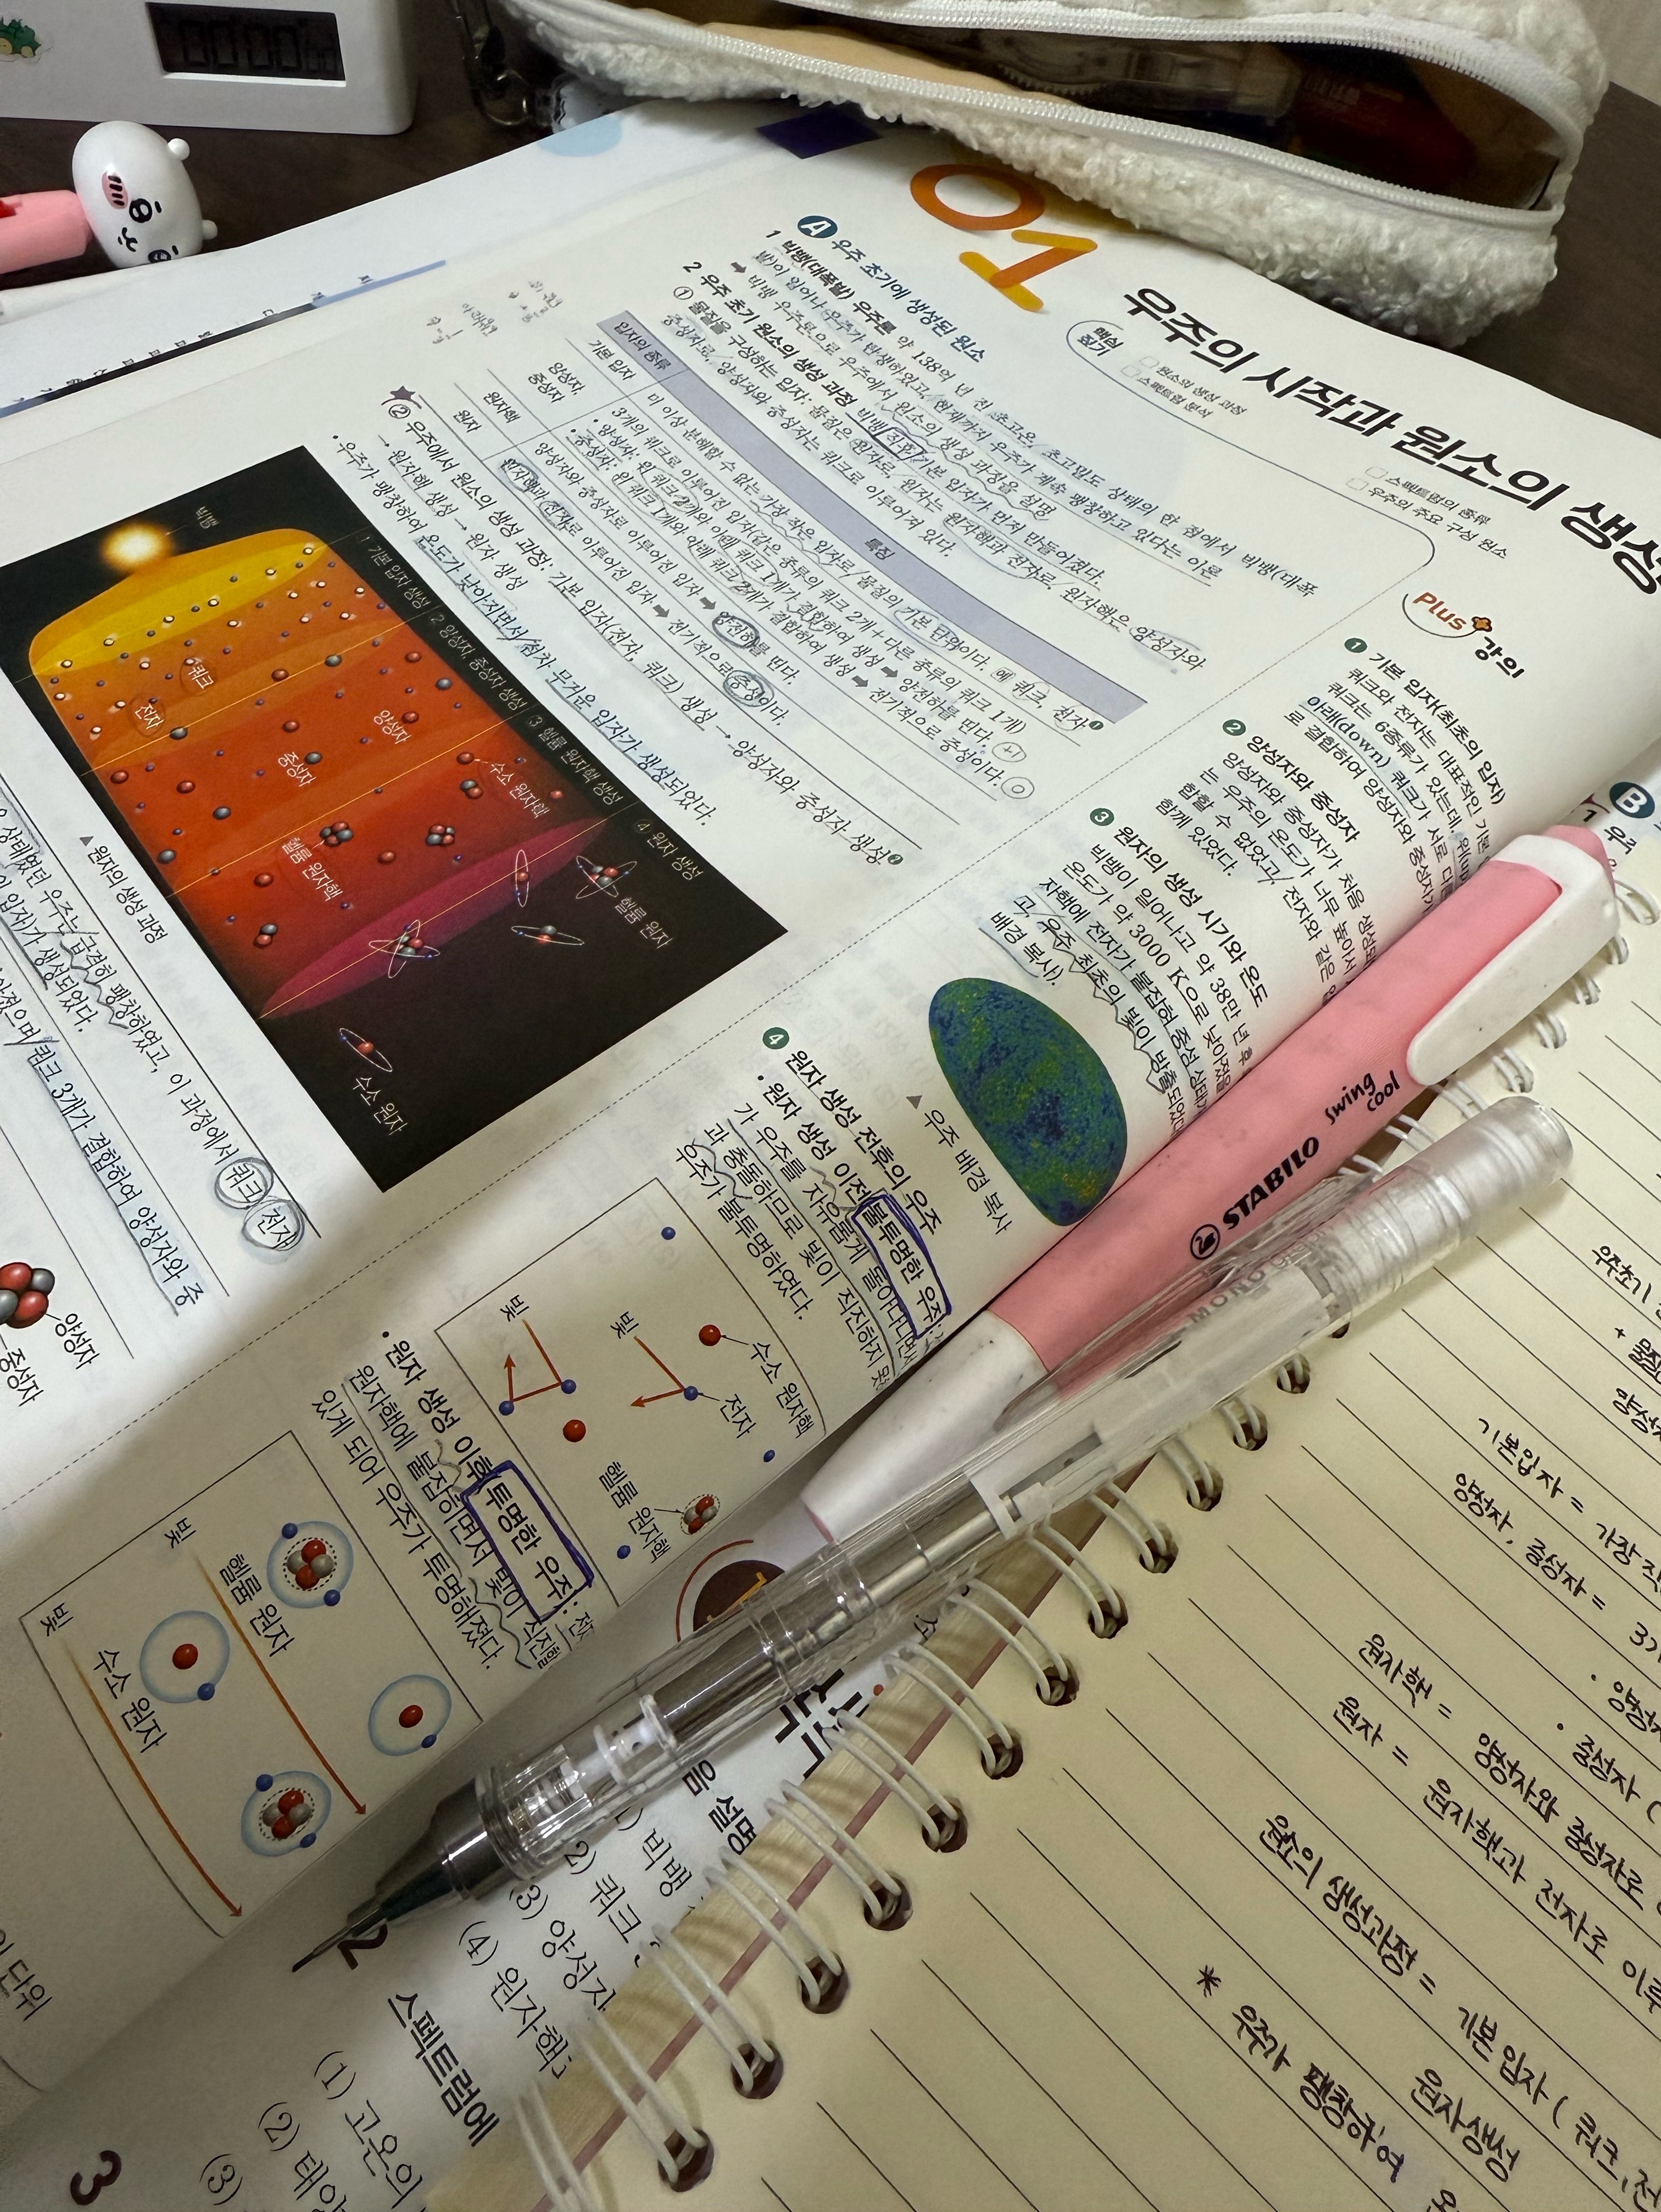 01
우주의 시작과 원소의 생성
핵심
짚기
원소의 생성 과정
스펙트럼 분석
스펙트럼의 종류
우주의 주요 구성 원소
A 우주 초기에 생성된 원소
1 빅뱅(대폭발) 우주론 약 138억 년 전 초고온, 초고밀도 상태의 한 점에서 빅뱅(대폭
발)이 일어나 우주가 탄생하였고, 현재까지 우주가 계속 팽창하고 있다는 이론
➡ 빅뱅 우주론으로 우주에서 원소의 생성 과정을 설명
2 우주 초기 원소의 생성 과정 빅뱅 직후 기본 입자가 먼저 만들어졌다.
① 물질을 구성하는 입자: 물질은 원자로, 원자는 원자핵과 전자로, 원자핵은 양성자와
중성자로, 양성자와 중성자는 쿼크로 이루어져 있다.
입자의 종류
특징
기본 입자
더 이상 분해할 수 없는 가장 작은 입자로, 물질의 기본 단위이다. 예 쿼크, 전자❶
양성자,
중성자
3개의 쿼크로 이루어진 입자(같은 종류의 쿼크 2개+다른 종류의 쿼크 1개)
• 양성자: 위 쿼크 2개와 아래 쿼크 1개가 결합하여 생성 ➡ 양전하를 띤다. +1
• 중성자: 위 쿼크 1개와 아래 쿼크 2개가 결합하여 생성 ➡ 전기적으로 중성이다. 0
원자핵
양성자와 중성자로 이루어진 입자 ➡ 양전하를 띤다.
원자
원자핵과 전자로 이루어진 입자 ➡ 전기적으로 중성이다.
② 우주에서 원소의 생성 과정: 기본 입자(전자, 쿼크) 생성 → 양성자와 중성자 생성❷
→ 원자핵 생성 → 원자 생성
• 우주가 팽창하여 온도가 낮아지면서 점차 무거운 입자가 생성되었다.
빅뱅
1 기본 입자 생성
2 양성자, 중성자 생성
3 헬륨 원자핵 생성
4 원자 생성
쿼크
전자
양성자
중성자
수소 원자핵
헬륨 원자핵
헬륨 원자
수소 원자
▲ 원자의 생성 과정
상태였던 우주는 급격히 팽창하였고, 이 과정에서 쿼크, 전자
입자)가 생성되었다.
쿼크 3개가 결합하여 양성자와 중
양성자
중성자
단위
Plus 강의
❶ 기본 입자(최초의 입자)
쿼크와 전자는 대표적인 기본
쿼크는 6종류가 있는데, 위(up)
아래(down) 쿼크가 서로 다른
로 결합하여 양성자와 중성자가
❷ 양성자와 중성자
양성자와 중성자가 처음 생성되
는 우주의 온도가 너무 높아서
합할 수 없었고, 전자와 같은
함께 있었다.
❸ 원자의 생성 시기와 온도
빅뱅이 일어나고 약 38만 년 후
온도가 약 3000 K으로 낮아졌을
자핵에 전자가 붙잡혀 중성 상태가
고, 우주 최초의 빛이 방출되었다
배경 복사).
▲ 우주 배경 복사
❹ 원자 생성 전후의 우주
• 원자 생성 이전(불투명한 우주):
가 우주를 자유롭게 돌아다니면서
과 충돌하므로 빛이 직진하지 못
우주가 불투명하였다.
수소 원자핵
빛
전자
빛
헬륨 원자핵
• 원자 생성 이후(투명한 우주): 전자
원자핵에 붙잡히면서 빛이 직진할
있게 되어 우주가 투명해졌다.
빛
헬륨 원자
빛
수소 원자
B
1 우주
음 설명
빅뱅
2) 쿼크
(3) 양성자
(4) 원자핵
2
스펙트럼에
(1) 고온의
(2) 태양
(3)
3
STABILO swing cool
MONO
우주초기
+ 물질
양성자
기본입자 = 가장 작
양성자, 중성자 = 3개
· 양성자
· 중성자 (
원자핵 = 양성자와 중성자로
원자 = 원자핵과 전자로 이루
원소의 생성과정 = 기본 입자 ( 쿼크, 전
원자생성
* 우주가 팽창하여